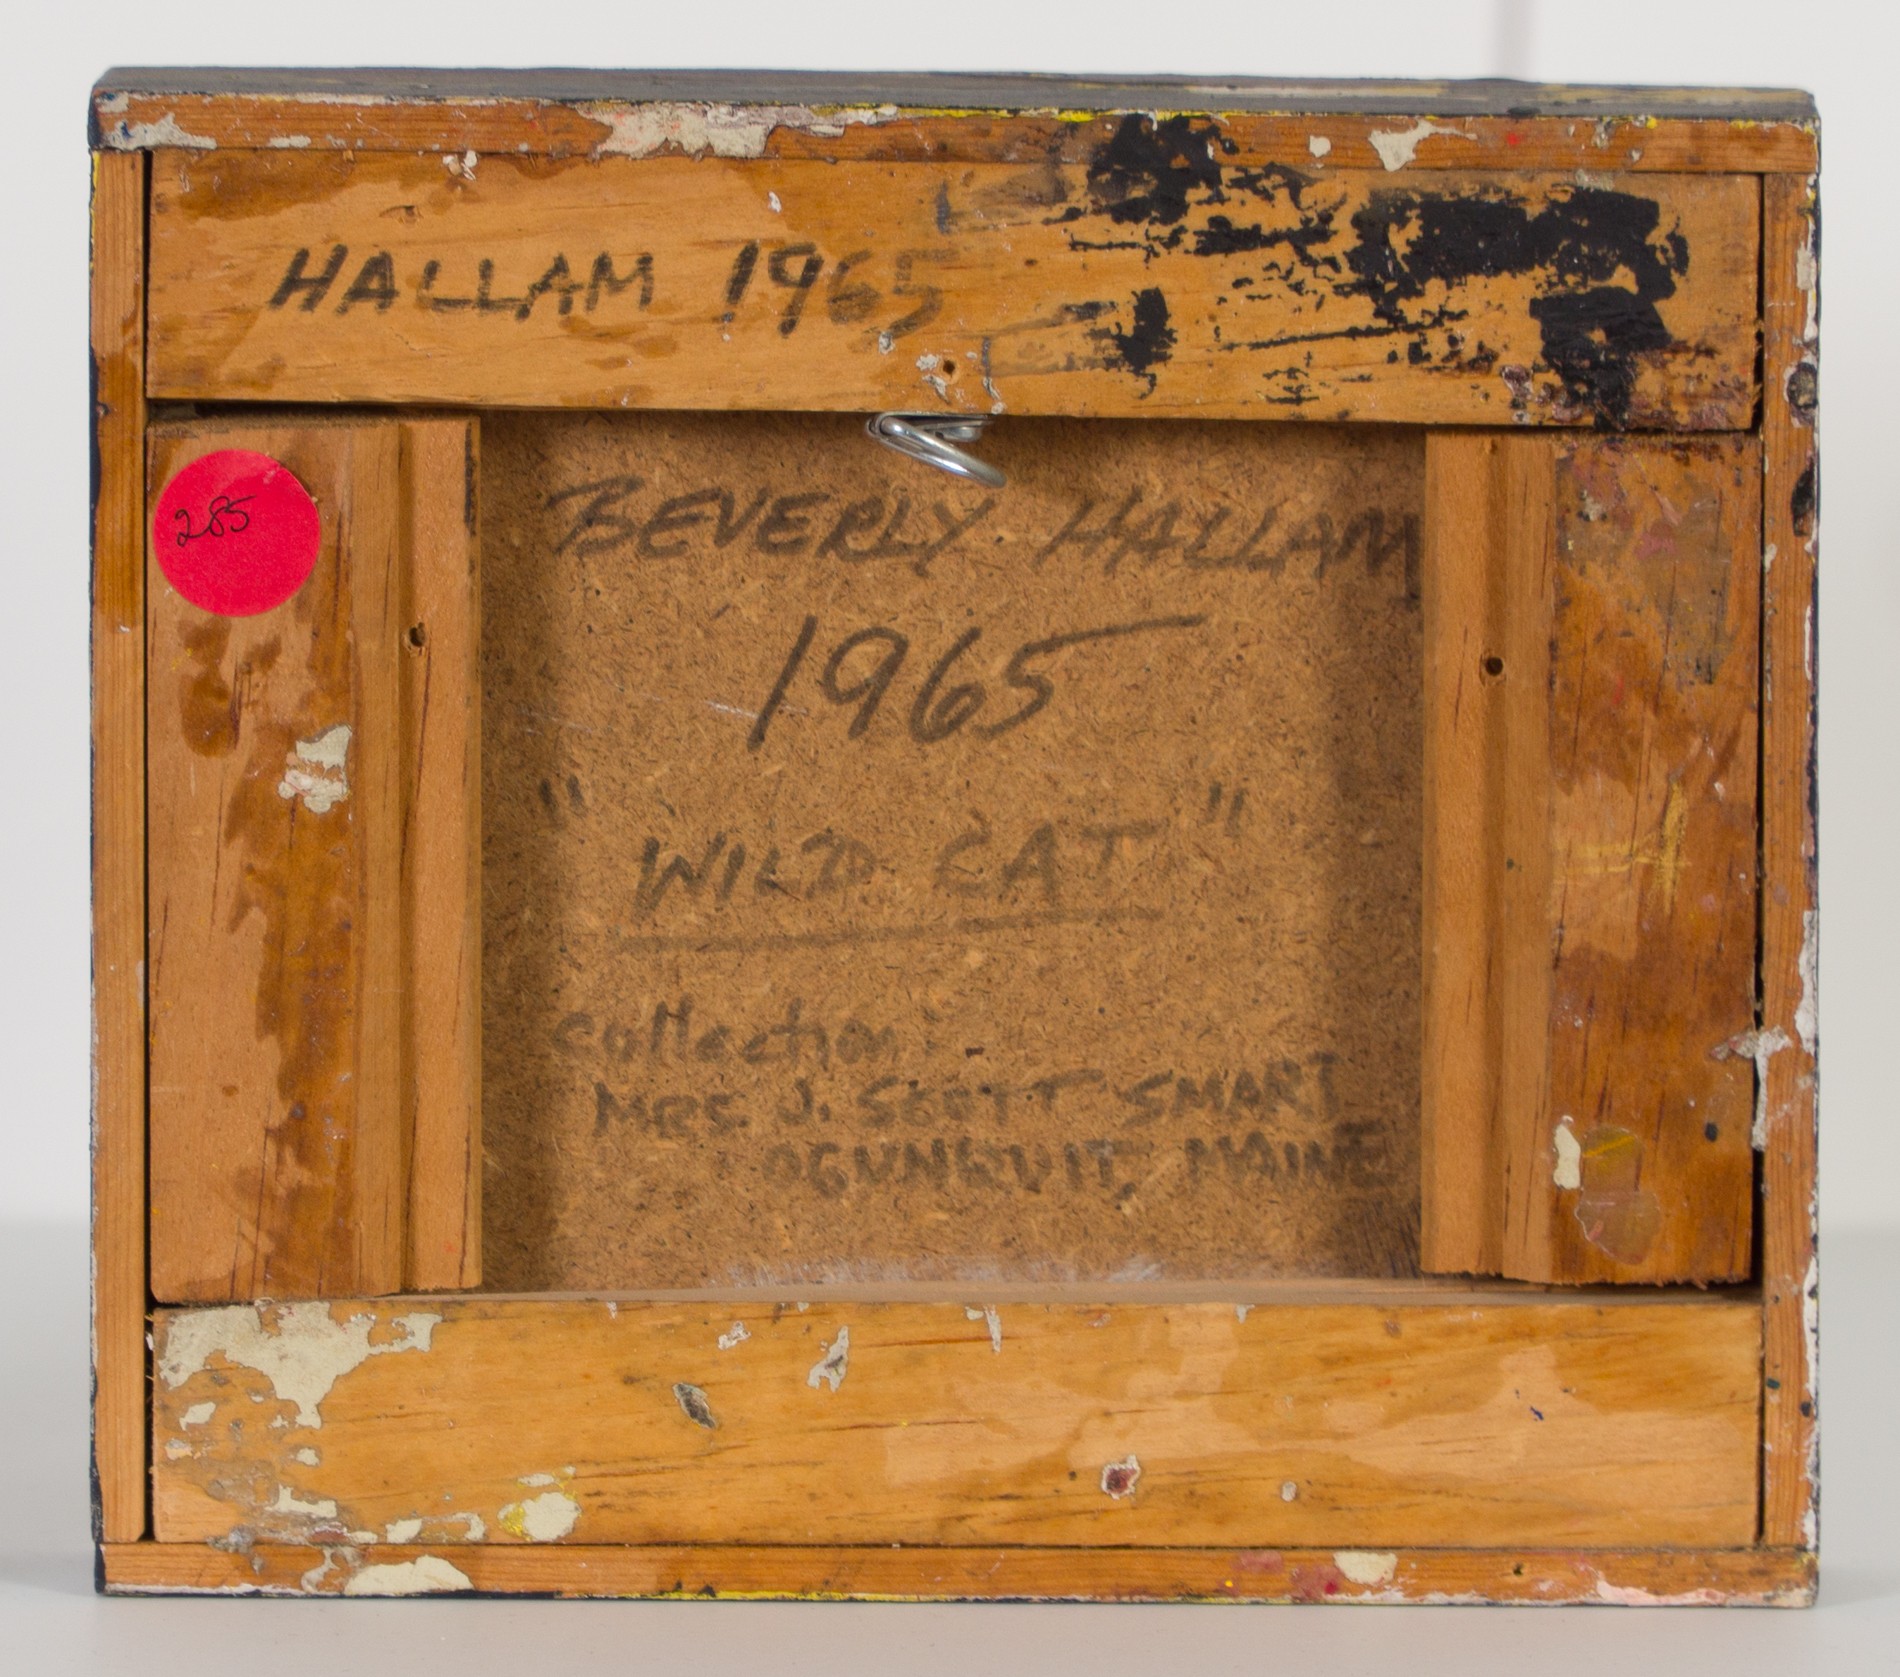 HALLAM 1965
285
BEVERLY HALLAM
1965
"WILD CAT"
collection:
MRS. J. SCOTT SMART
OGUNQUIT, MAINE